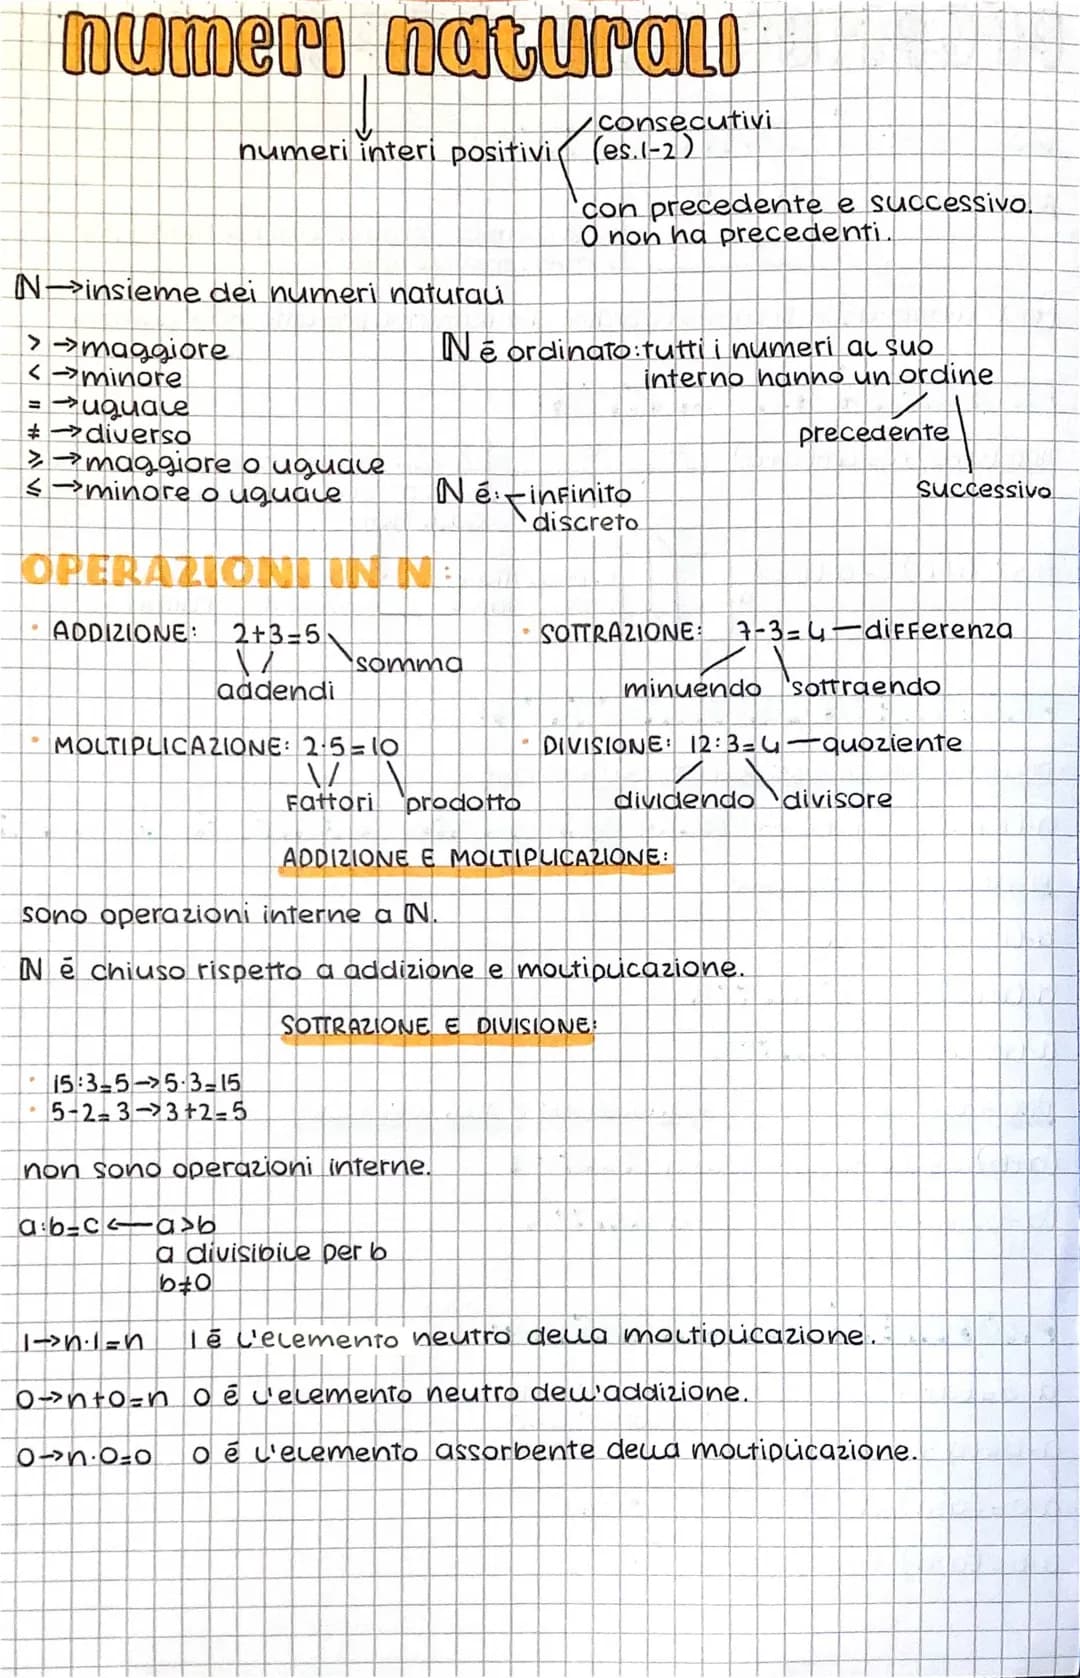 numeri naturali
numeri interi positivi
consecutivi
(es.1-2)
con precedente e successivo.
0 non ha precedenti.
ℕ→insieme dei numeri naturali
> →maggiore
< →minore
= →uguale
≠ →diverso
≥ →maggiore o uguale
≤ →minore o uguale
ℕ é ordinato: tutti i numeri al suo
interno hanno un ordine
precedente
successivo
ℕ é: infinito
discreto
OPERAZIONI IN N:
• ADDIZIONE: 2+3=5
somma
addendi
• SOTTRAZIONE: 7-3=4—differenza
minuendo sottraendo
• MOLTIPLICAZIONE: 2·5=10
fattori prodotto
• DIVISIONE: 12:3=4—quoziente
dividendo divisore
ADDIZIONE E MOLTIPLICAZIONE:
sono operazioni interne a ℕ.
ℕ é chiuso rispetto a addizione e moltiplicazione.
SOTTRAZIONE E DIVISIONE:
• 15:3=5→5·3=15
• 5-2=3→3+2=5
non sono operazioni interne.
a:b=c←a>b
a divisibile per b
b≠0
1→n·1=n 1 é l'elemento neutro della moltiplicazione.
0→n+0=n 0 é l'elemento neutro dell'addizione.
0→n·0=0 0 é l'elemento assorbente della moltiplicazione.